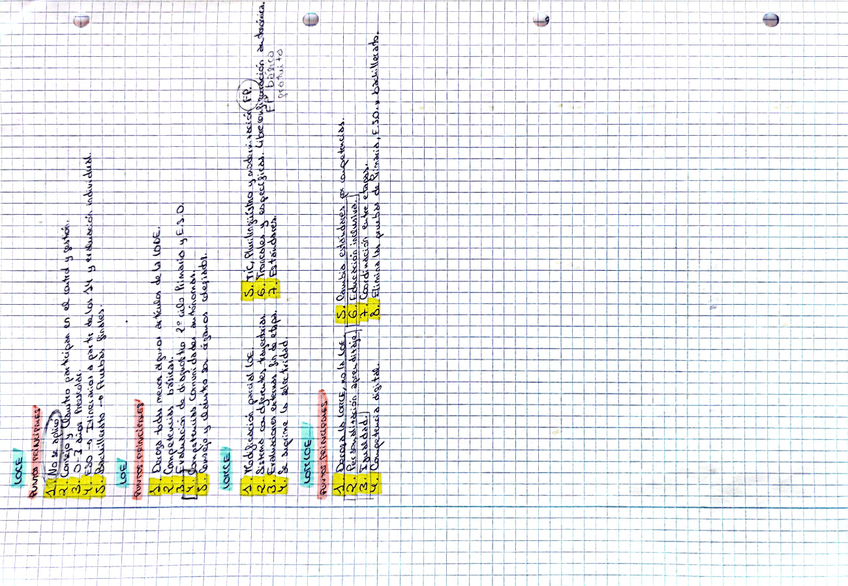 LOCE
PUNTOS PRINCIPALES
1. No se aplicó
2. Consejo y Claustro participan en el control y gestión.
3. 0-3 años Preescolar.
4. ESO → Itinerarios a partir de los 14 y evaluación individual.
5. Bachillerato → Pruebas finales.
LOE
PUNTOS PRINCIPALES
1. Deroga todas menos algunos artículos de la LODE.
2. Competencias básicas.
3. Evaluación de diagnóstico 2º ciclo Primaria y E.S.O.
4. Competencias Comunidades autónomas.
5. Consejo y claustro son órganos colegiados.
LOMCE
1. Modificación parcial LOE
2. Sistema con diferentes trayectorias.
3. Evaluaciones externas fin de etapa.
4. Se suprime la selectividad.
5. TIC, Plurilingüístico y modernización FP.
6. Troncales y específicas. Libre configuración autonómica.
7. Estándares.
FP básica
gratuita
LOMLOE
PUNTOS PRINCIPALES
1. Deroga la LOMCE, no la LOE
2. Personalización aprendizaje
3. Igualdad.
4. Competencia digital.
5. Cambia estándares por competencias.
6. Educación inclusiva.
7. Coordinación entre etapas.
8. Elimina las pruebas de Primaria, E.S.O. y bachillerato.